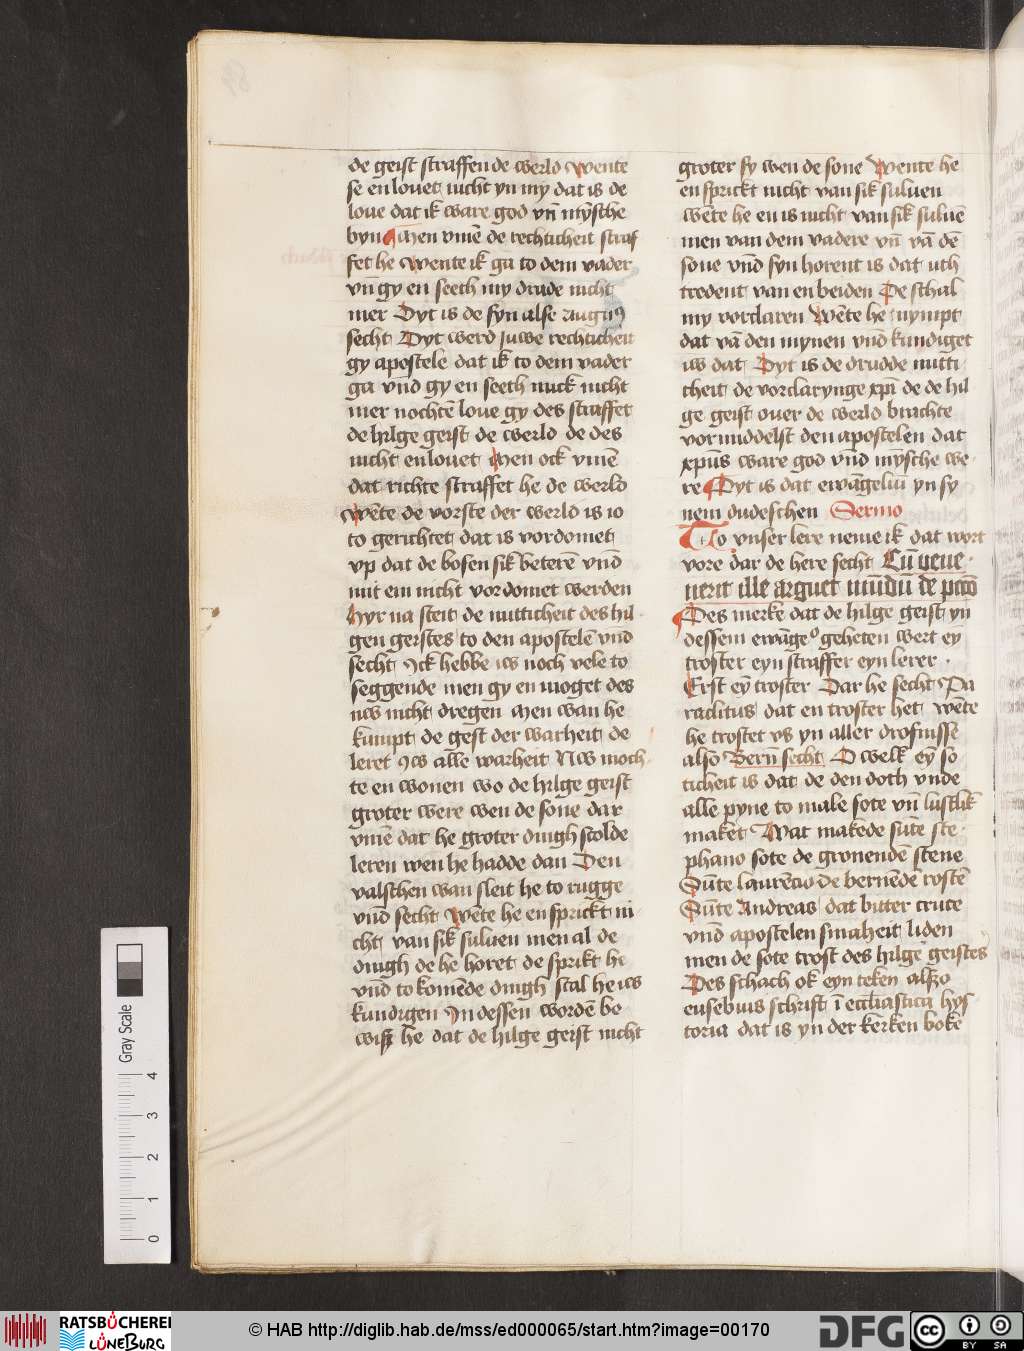 de geist straffen de werld wente
se en louet nicht yn my dat is de
loue dat ik ware god vn̄ mȳsche
byn Men vmē̄ de rechticheit straf
fet he wente ik ga to dem vader
vn̄ gy en seeth my drade nicht
mer Dyt is de syn alse Augꝰ
secht Dyt werd juwe rechticheit
gy apostele dat ik to dem vader
ga vnd gy en seeth mick nicht
mer nochtē loue gy des straffet
de hilge geist de werld de des
nicht enlouet Men ock vmē
dat richte straffet he de werld
wēte de vorste der werld is io
to gerichtet dat is vordomet
vp dat de bosen sik beterē vnd̄
mit em nicht vordomet werden
Hyr na steit de nutticheit des hil
gen geistes to den apostelē vnd
secht Ick hebbe iw noch vele to
seggende men gy en moget des
nw nicht dregen Men wan he
kumpt de gest der warheit de
leret yw alle warheit Nw moch
te en wonen wo de hilge geist
groter were wen de sone dar
vmē dat he groter dingh scolde
leren wen he hadde dan Den
valschen wan sleit he to rugge
vnd secht Wēte he en sprickt ni
cht van sik suluen men al de
dingh de he horet de sprikt he
vnd to komēde dingh scal he iw
kundigen In dessen wordē be
wiſʒ he dat de hilge geist nicht
groter sy wen de sone Wente he
en sprickt nicht van sik suluen
wēte he en is nicht van sik suluē
men van dem vadere vn̄ vā dē
sone vnd syn horent is dat uth
tredent van en beiden De schal
my vorclaren Wēte he nympt
dat vā den mynen vnd kundiget
iw dat Dyt is de drudde nutti
cheit de vorclarynge xp̄i de de hil
ge geist ouer de werld brachte
vormiddelst den apostelen dat
xp̄us ware god vnd mȳsche we
re Dyt is dat ewāgeliū yn sy
nem dudeschen Sermo
To vnser lere neme ik dat wort
vore dar de here secht Cū vene
nerit ille arguet mūdū de pccō
Des merke dat de hilge geist yn
dessem ewāgeᵒ geheten wert ey
troster eyn straffer eyn lerer
Erst eȳ troster Dar he secht Pa
raclitus dat en troster het wēte
he trostet vs yn aller drofnisse
also Bern̄ secht O welk eȳ so
ticheit is dat de den doth vnde
alle pyne to male sote vn̄ lustlik
maket Wat makede sūte ste
phano sote de gronendē stene
Sūte laurēcio de bernēdē rostē
Sūte Andreas dat bitter cruce
vnd apostelen smaheit liden
men de sote trost des hilgē geistes
Des schach ok eyn teken alſʒo
eusebius schrift ī eccliastica hys
toria dat is yn der kerken bokē
Gray Scale
4
3
2
1
0
RATSBÜCHEREI
LÜNEBURG
© HAB http://diglib.hab.de/mss/ed000065/start.htm?image=00170
DFG
CC
BY SA